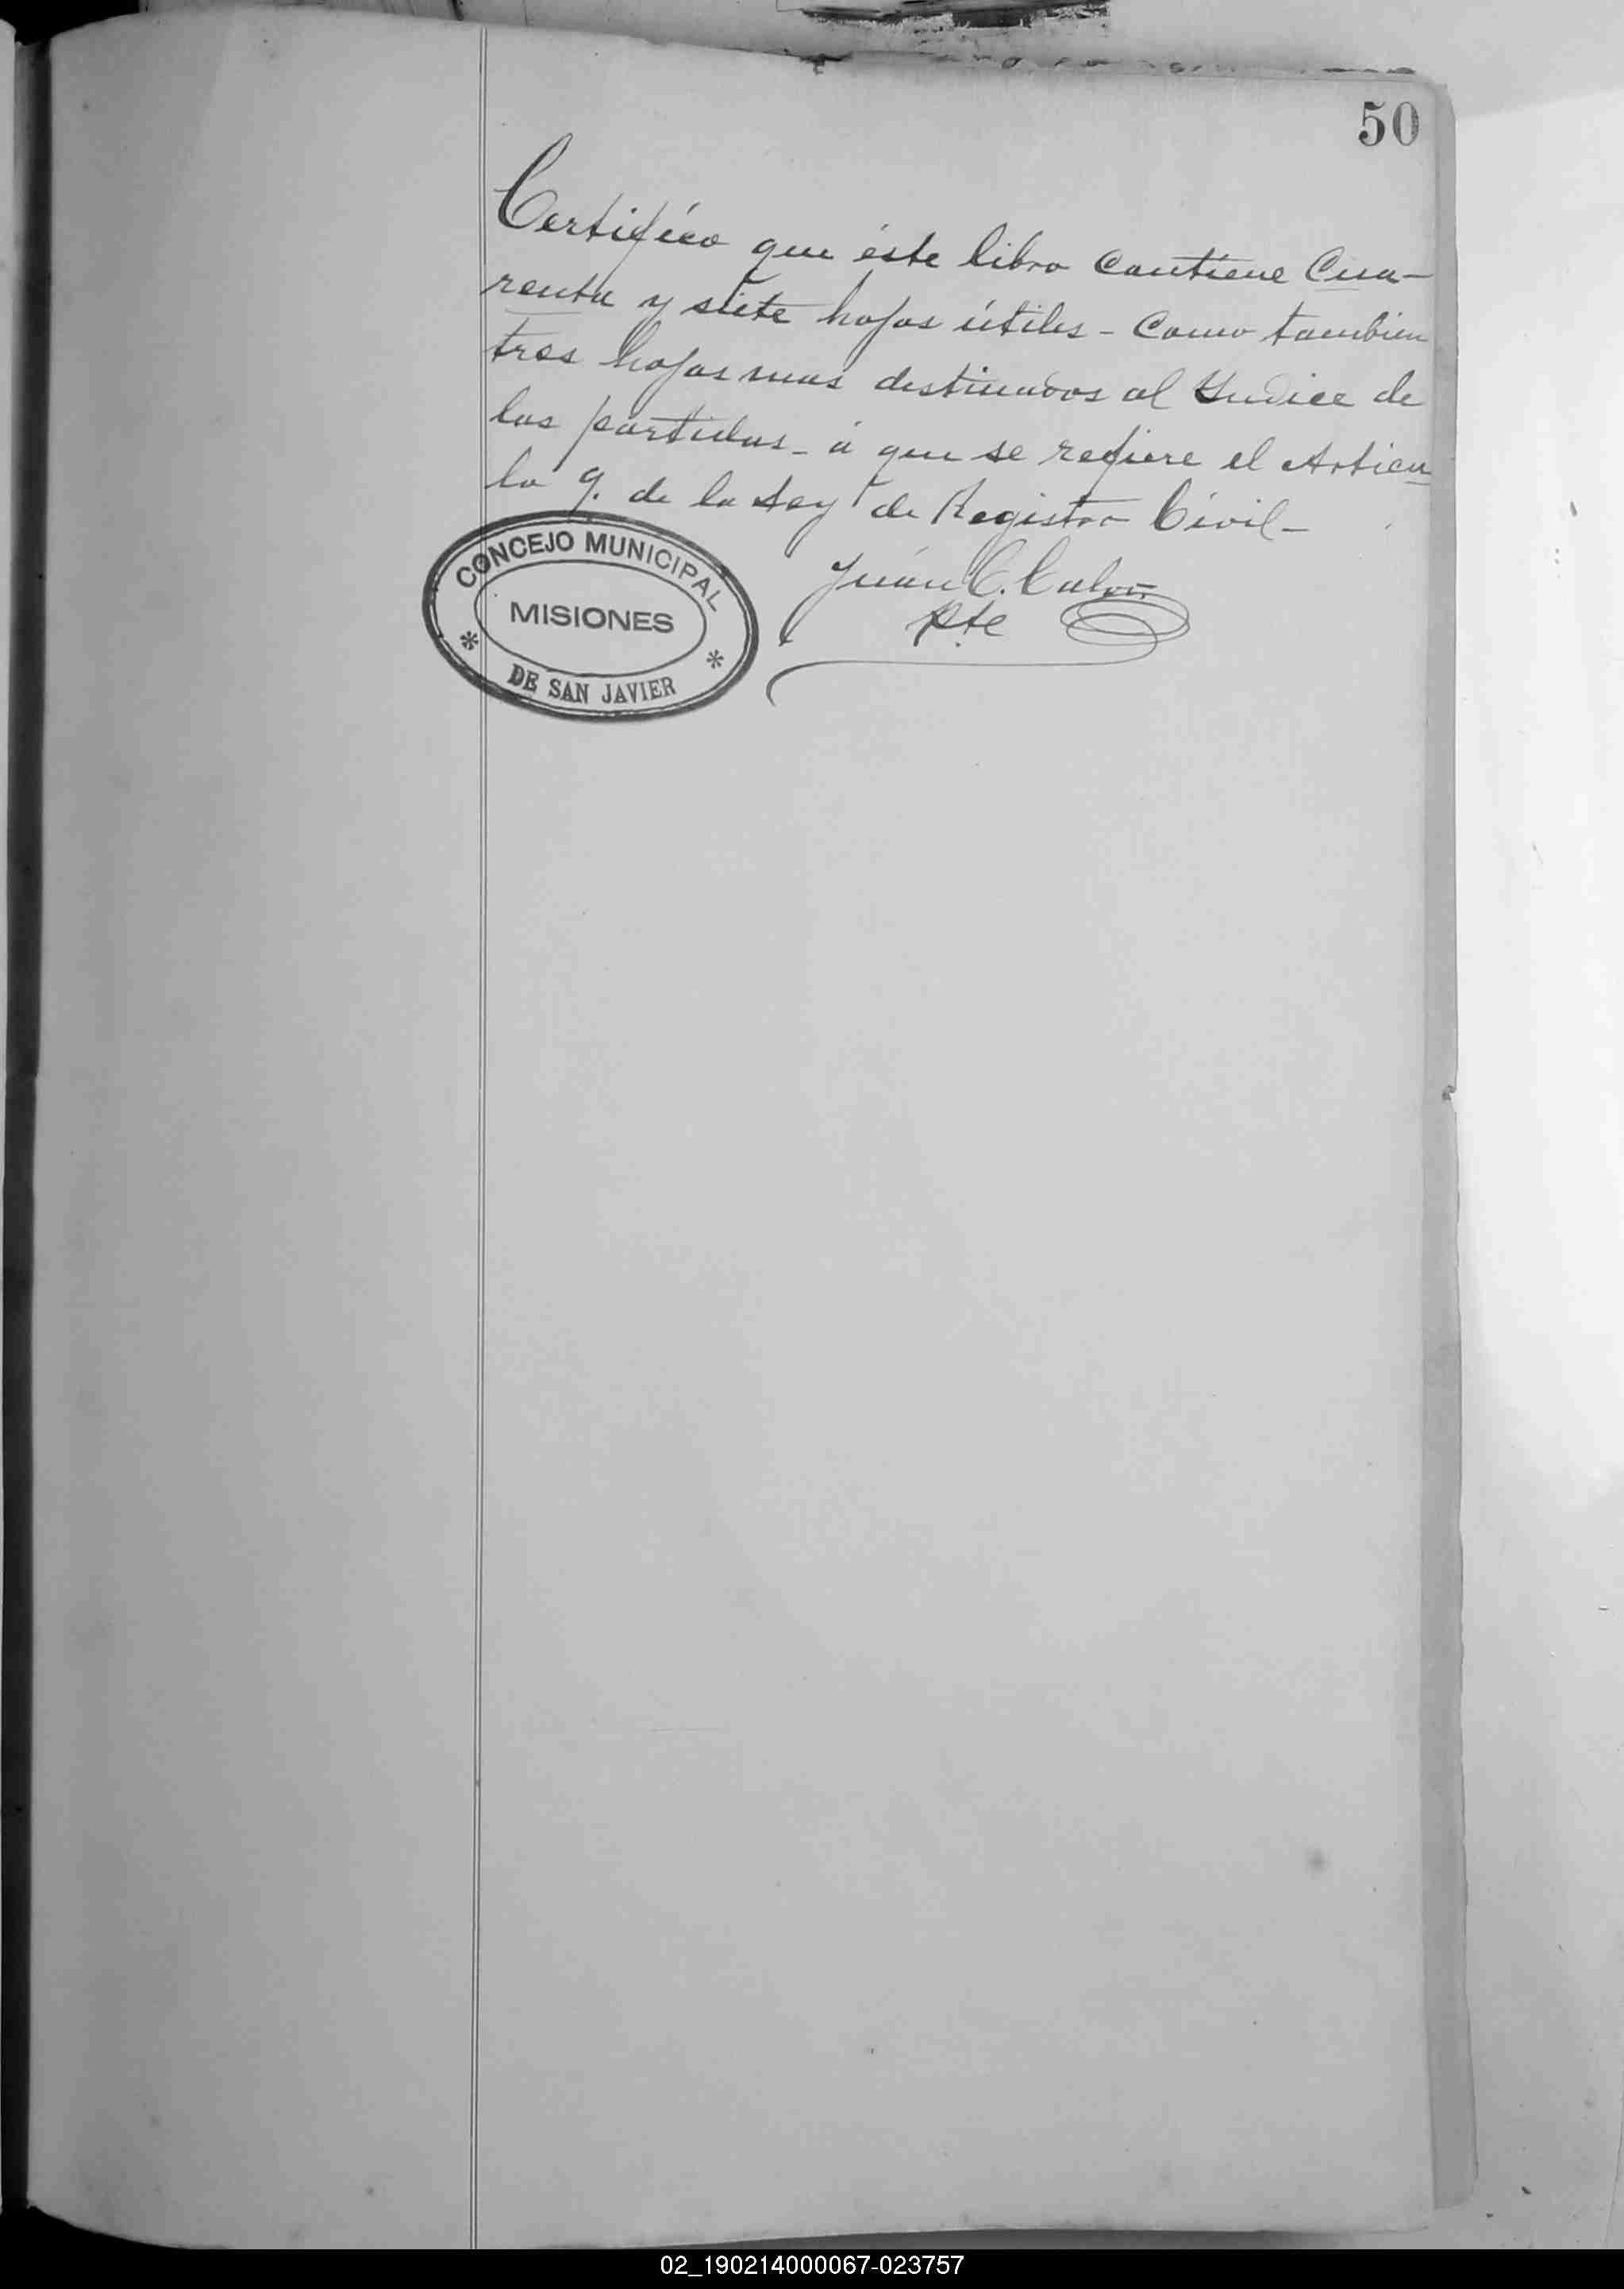 50
Certifíco que éste libro contiene Cua-
renta y siete hojas útiles - Como tambien
tres hojas mas destinados al Yndice de
las partidas - á que se refiere el Articu
lo 9. de la Ley de Registro Civil -
Juan C.
Pte
CONCEJO MUNICIPAL
MISIONES
DE SAN JAVIER
02_190214000067-023757